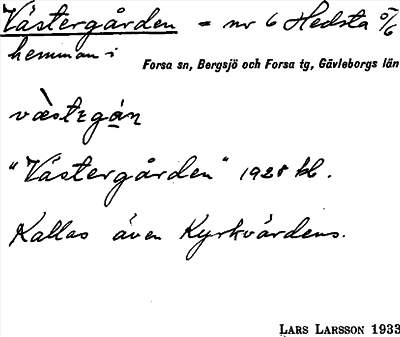 Västergården = nr 6 Hedsta 5/6
hemman i
Forsa sn, Bergsjö och Forsa tg, Gävleborgs län
væ̀stɛgạ́n
"Västergården" 1928 kb.
Kallas även Kyrkvärdens.
LARS LARSSON 1933